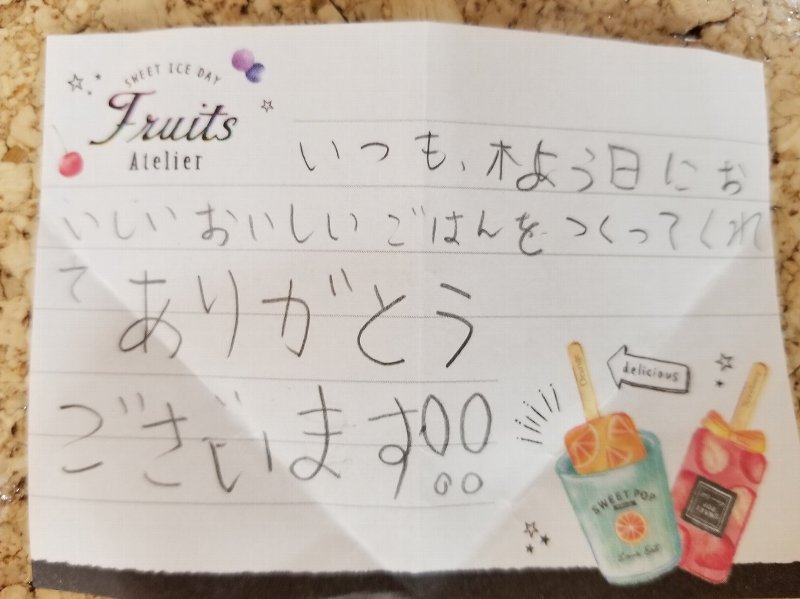 SWEET ICE DAY
Fruits
Atelier
いつも、木よう日にお
いしいおいしいごはんをつくってくれ
て
ありがとう
ございます!!
delicious
SWEET POP